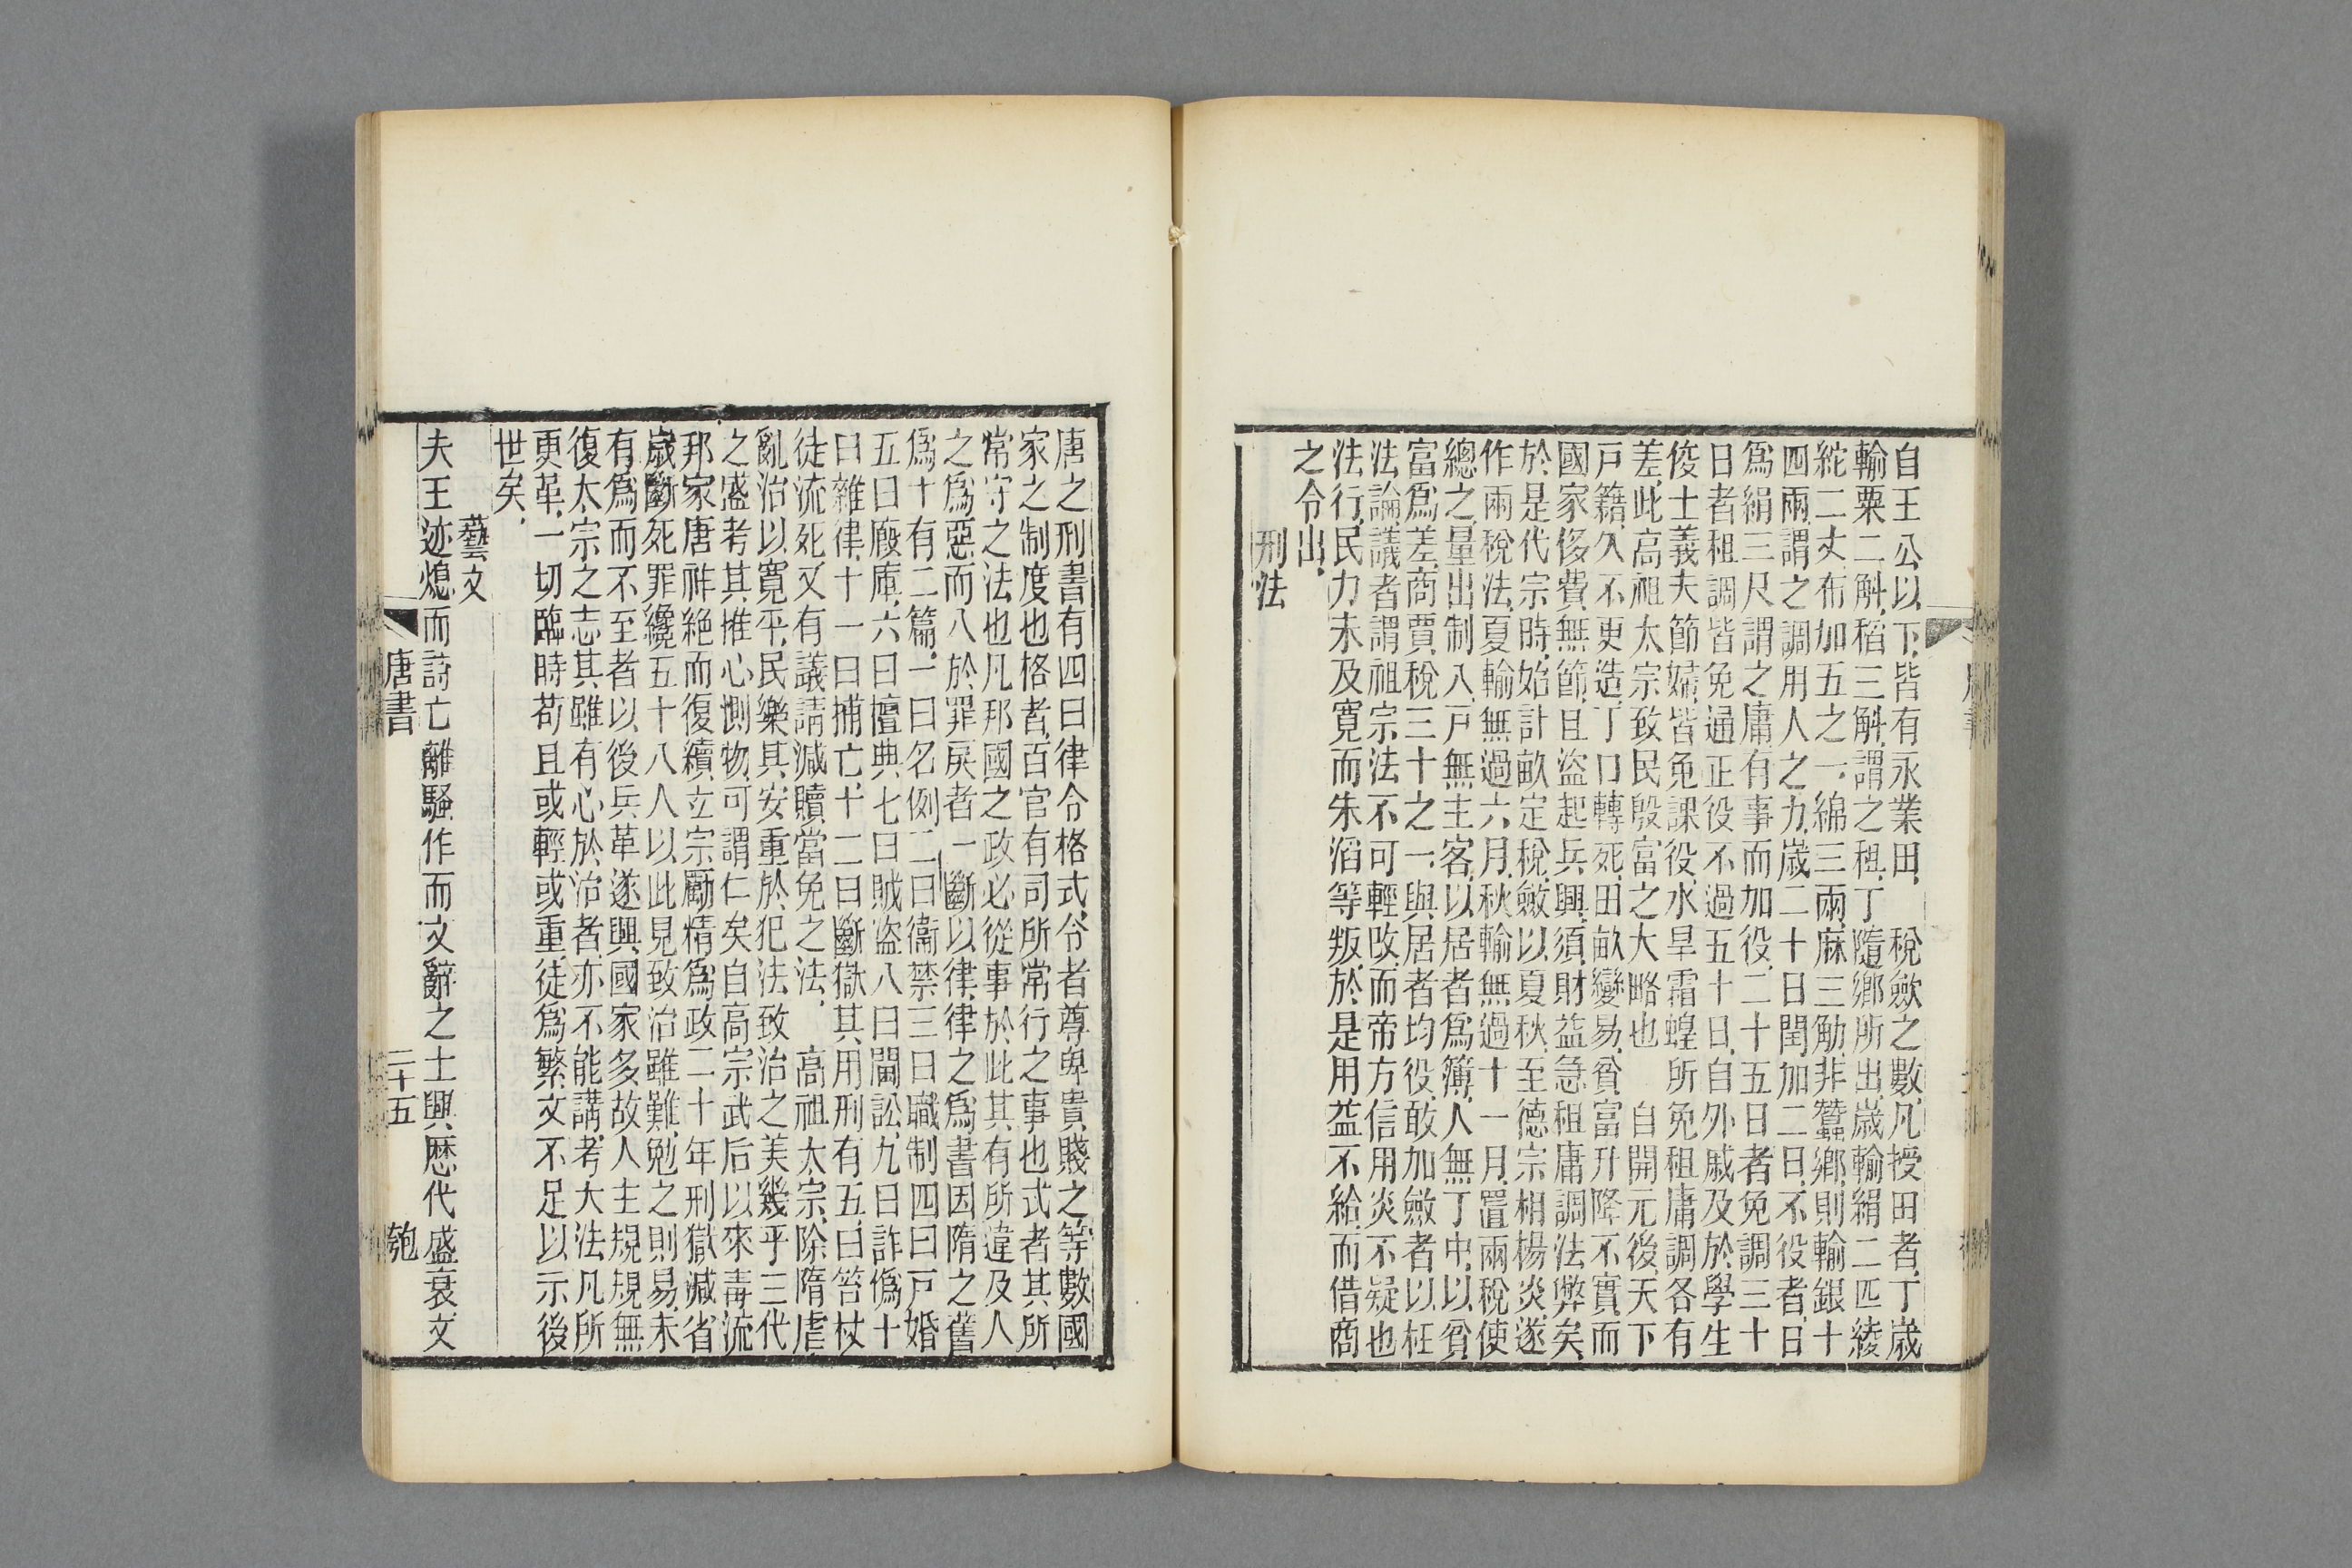 自王公以下皆有永業田、　稅歛之數凡授田者丁歲
輸粟二斛稻三斛謂之租丁隨鄉所出歲輸絹二匹綾
絁二丈布加五之一綿三兩麻三觔非蠶鄉則輸銀十
四兩謂之調用人之力歲二十日閏加二日不役者日
爲絹三尺謂之庸有事而加役二十五日者免調三十
日者租調皆免通正役不過五十日自外戚及於學生
俊士義夫節婦皆免課役水旱霜蝗所免租庸調各有
差此高祖太宗致民殷富之大略也　自開元後天下
戸籍久不更造丁口轉死田畝變易貧富升降不實而
國家侈費無節且盜起兵興須財益急租庸調法弊矣
於是代宗時始計畝定稅斂以夏秋至德宗相楊炎遂
作兩稅法夏輸無過六月秋輸無過十一月置兩稅使
總之量出制入戸無主客以居者爲簿人無丁中以貧
富爲差商賈稅三十之一與居者均役敢加斂者以枉
法論議者謂祖宗法不可輕改而帝方信用炎不疑也
法行民力未及寬而朱滔等叛於是用益不給而借商
之令出、
刑法
唐之刑書有四曰律令格式令者尊卑貴賤之等數國
家之制度也格者百官有司所常行之事也式者其所
常守之法也凡邦國之政必從事於此其有所違及人
之爲惡而入於罪戾者一斷以律律之爲書因隋之舊
爲十有二篇一曰名例二曰衞禁三曰職制四曰戸婚
五曰廄庫六曰擅興七曰賊盜八曰鬭訟九曰詐僞十
曰雜律十一曰捕亡十二曰斷獄其用刑有五曰笞杖
徒流死又有議請減贖當免之法、　高祖太宗除隋虐
亂治以寬平民樂其安重於犯法致治之美幾乎三代
之盛考其推心惻物可謂仁矣自高宗武后以來毒流
邦家唐祚絶而復續玄宗勵精爲政二十年刑獄減省
歲斷死罪纔五十八人以此見致治雖難勉之則易未
有爲而不至者以後兵革遂興國家多故人主規規無
復太宗之志其雖有心於治者亦不能講考大法凡所
更革一切臨時苟且或輕或重徒爲繁文不足以示後
世矣、
藝文
夫王迹熄而詩亡離騷作而文辭之士興歷代盛衰文
唐書　二十五